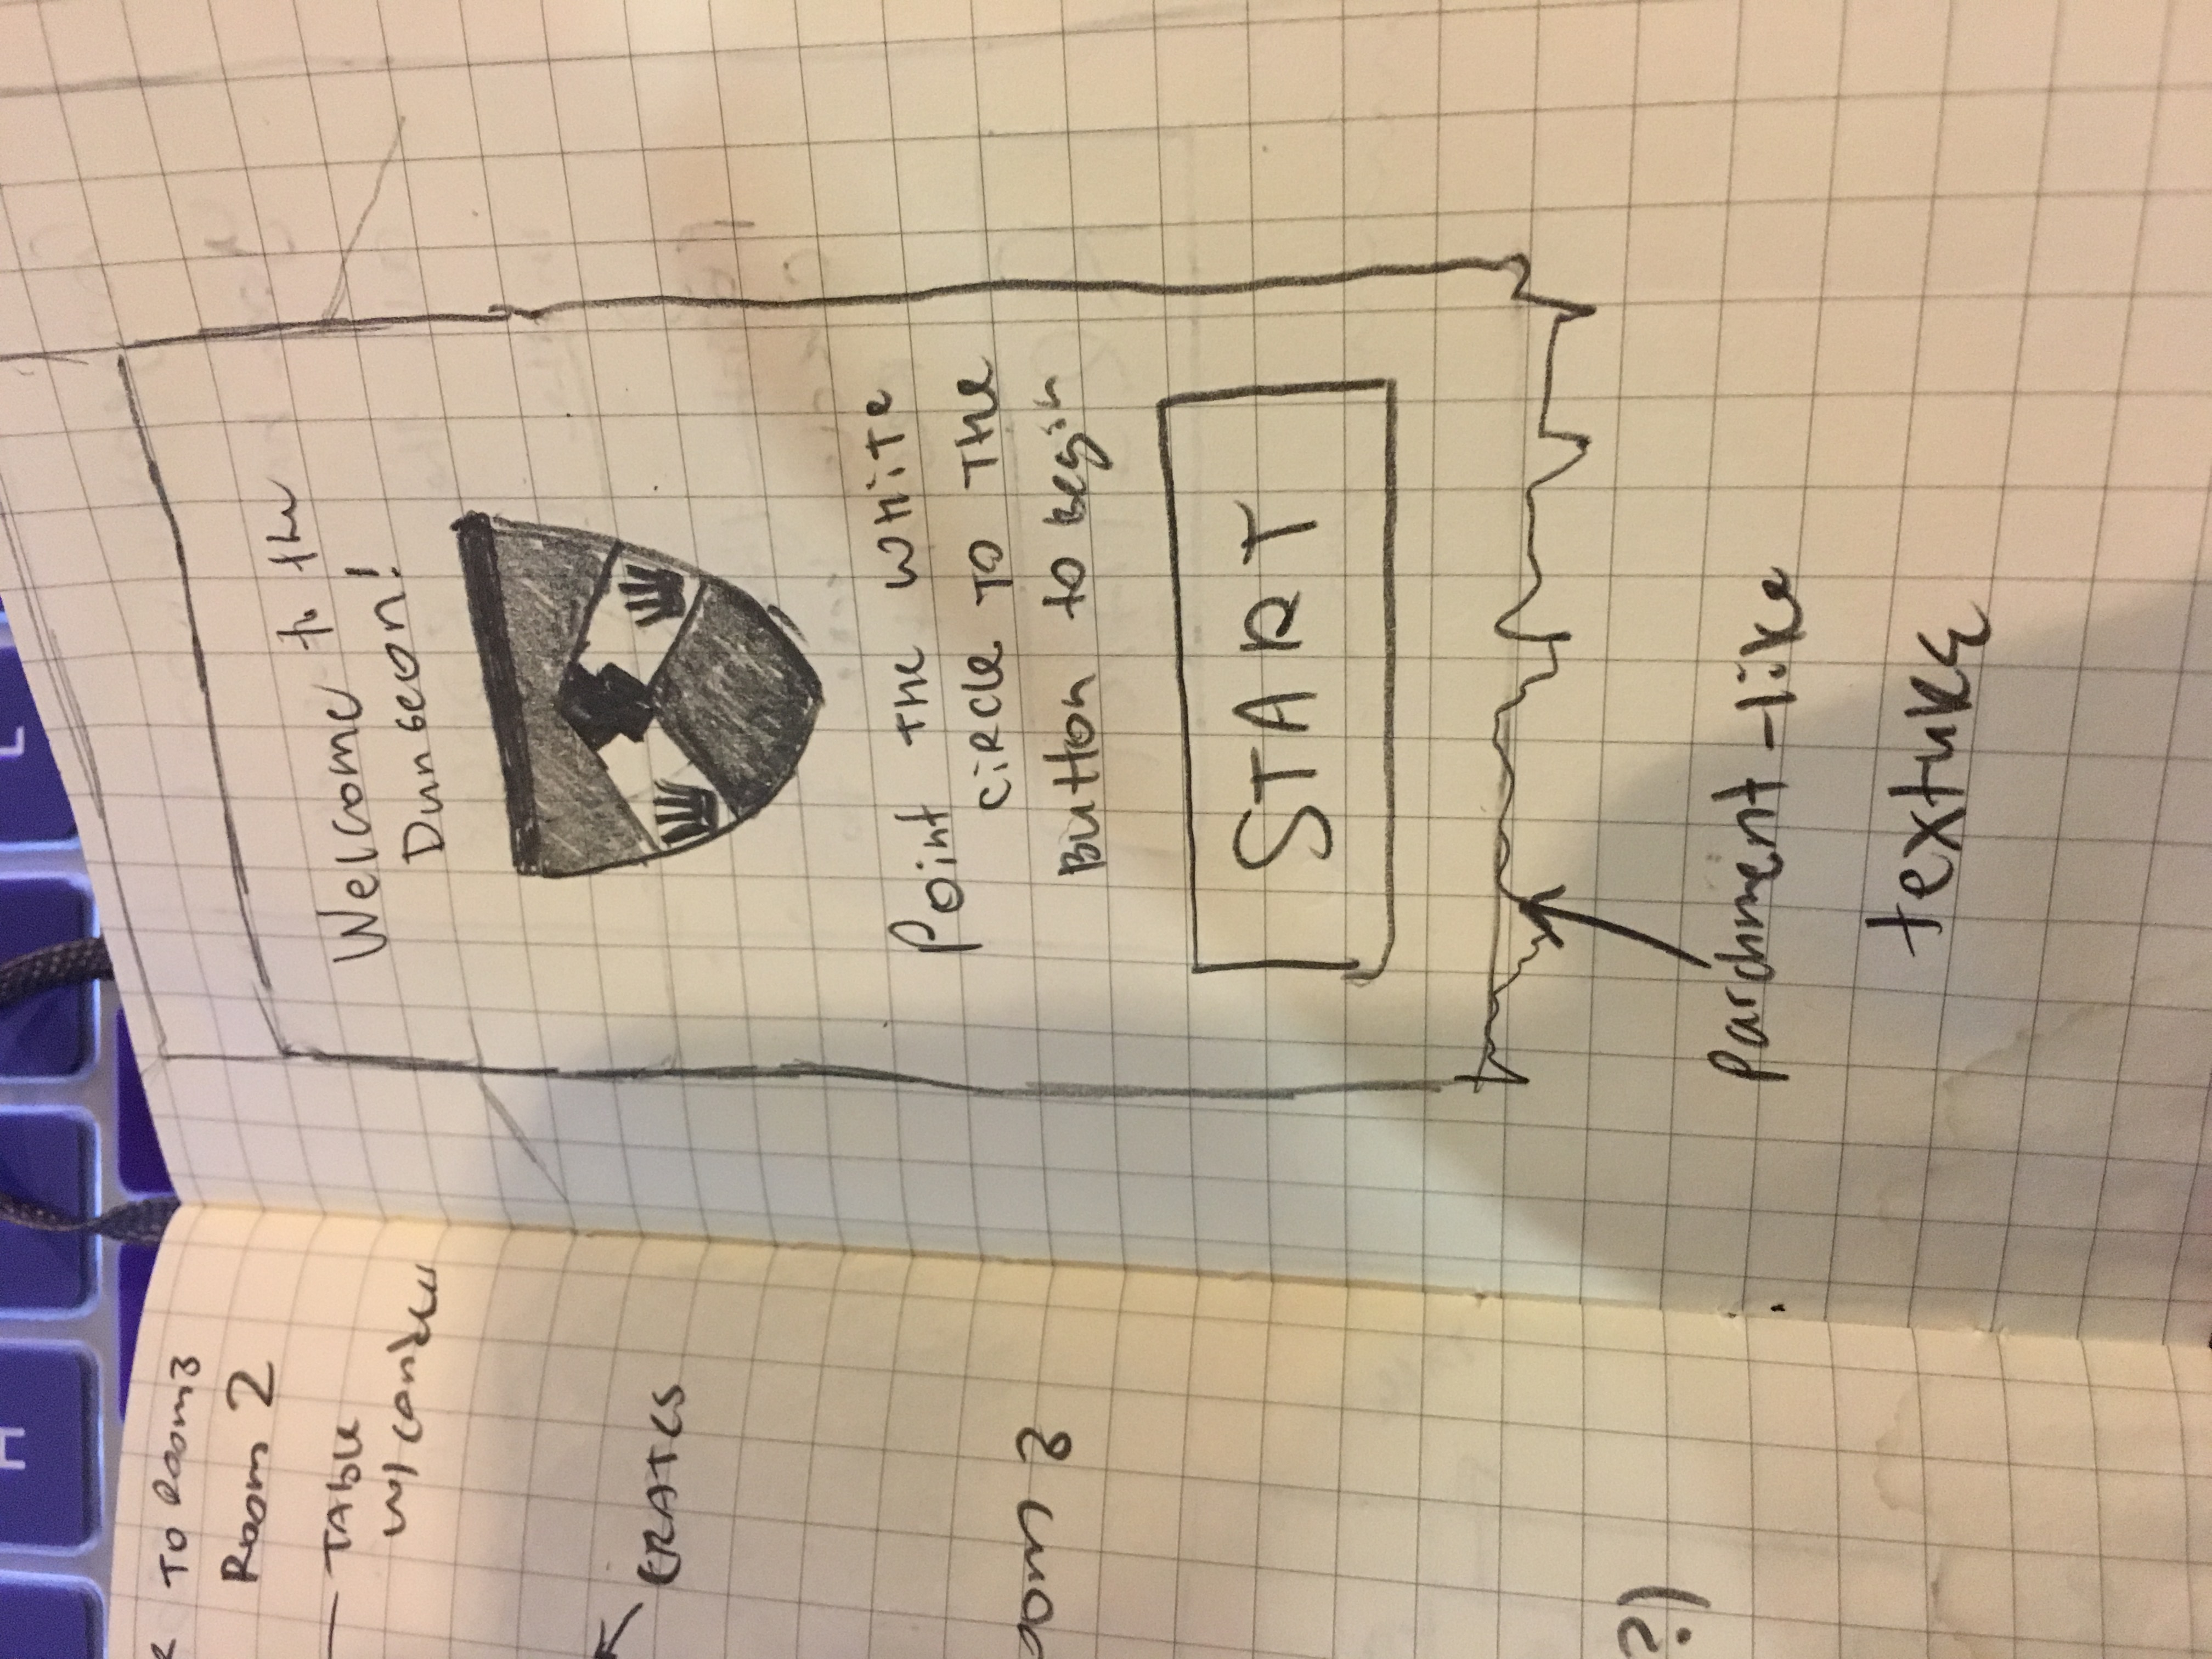 H
L
To Room3
Room 2
TABLE
w/ candles
CRATES
oom 3
?)
Welcome to the
Dungeon!
Point THE WHITE
CIRCLE TO THE
Button to Begin
START
Parchment-like
texture